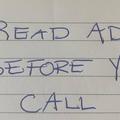 READ AD
BEFORE Y
CALL